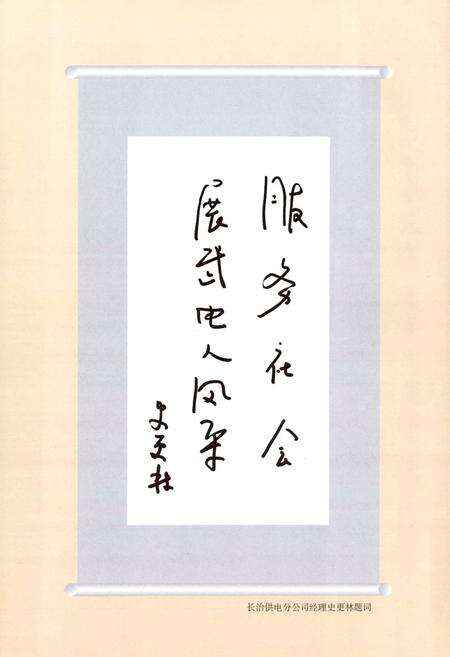 服务社会
展武电人风采
史更林
长治供电分公司经理史更林题词